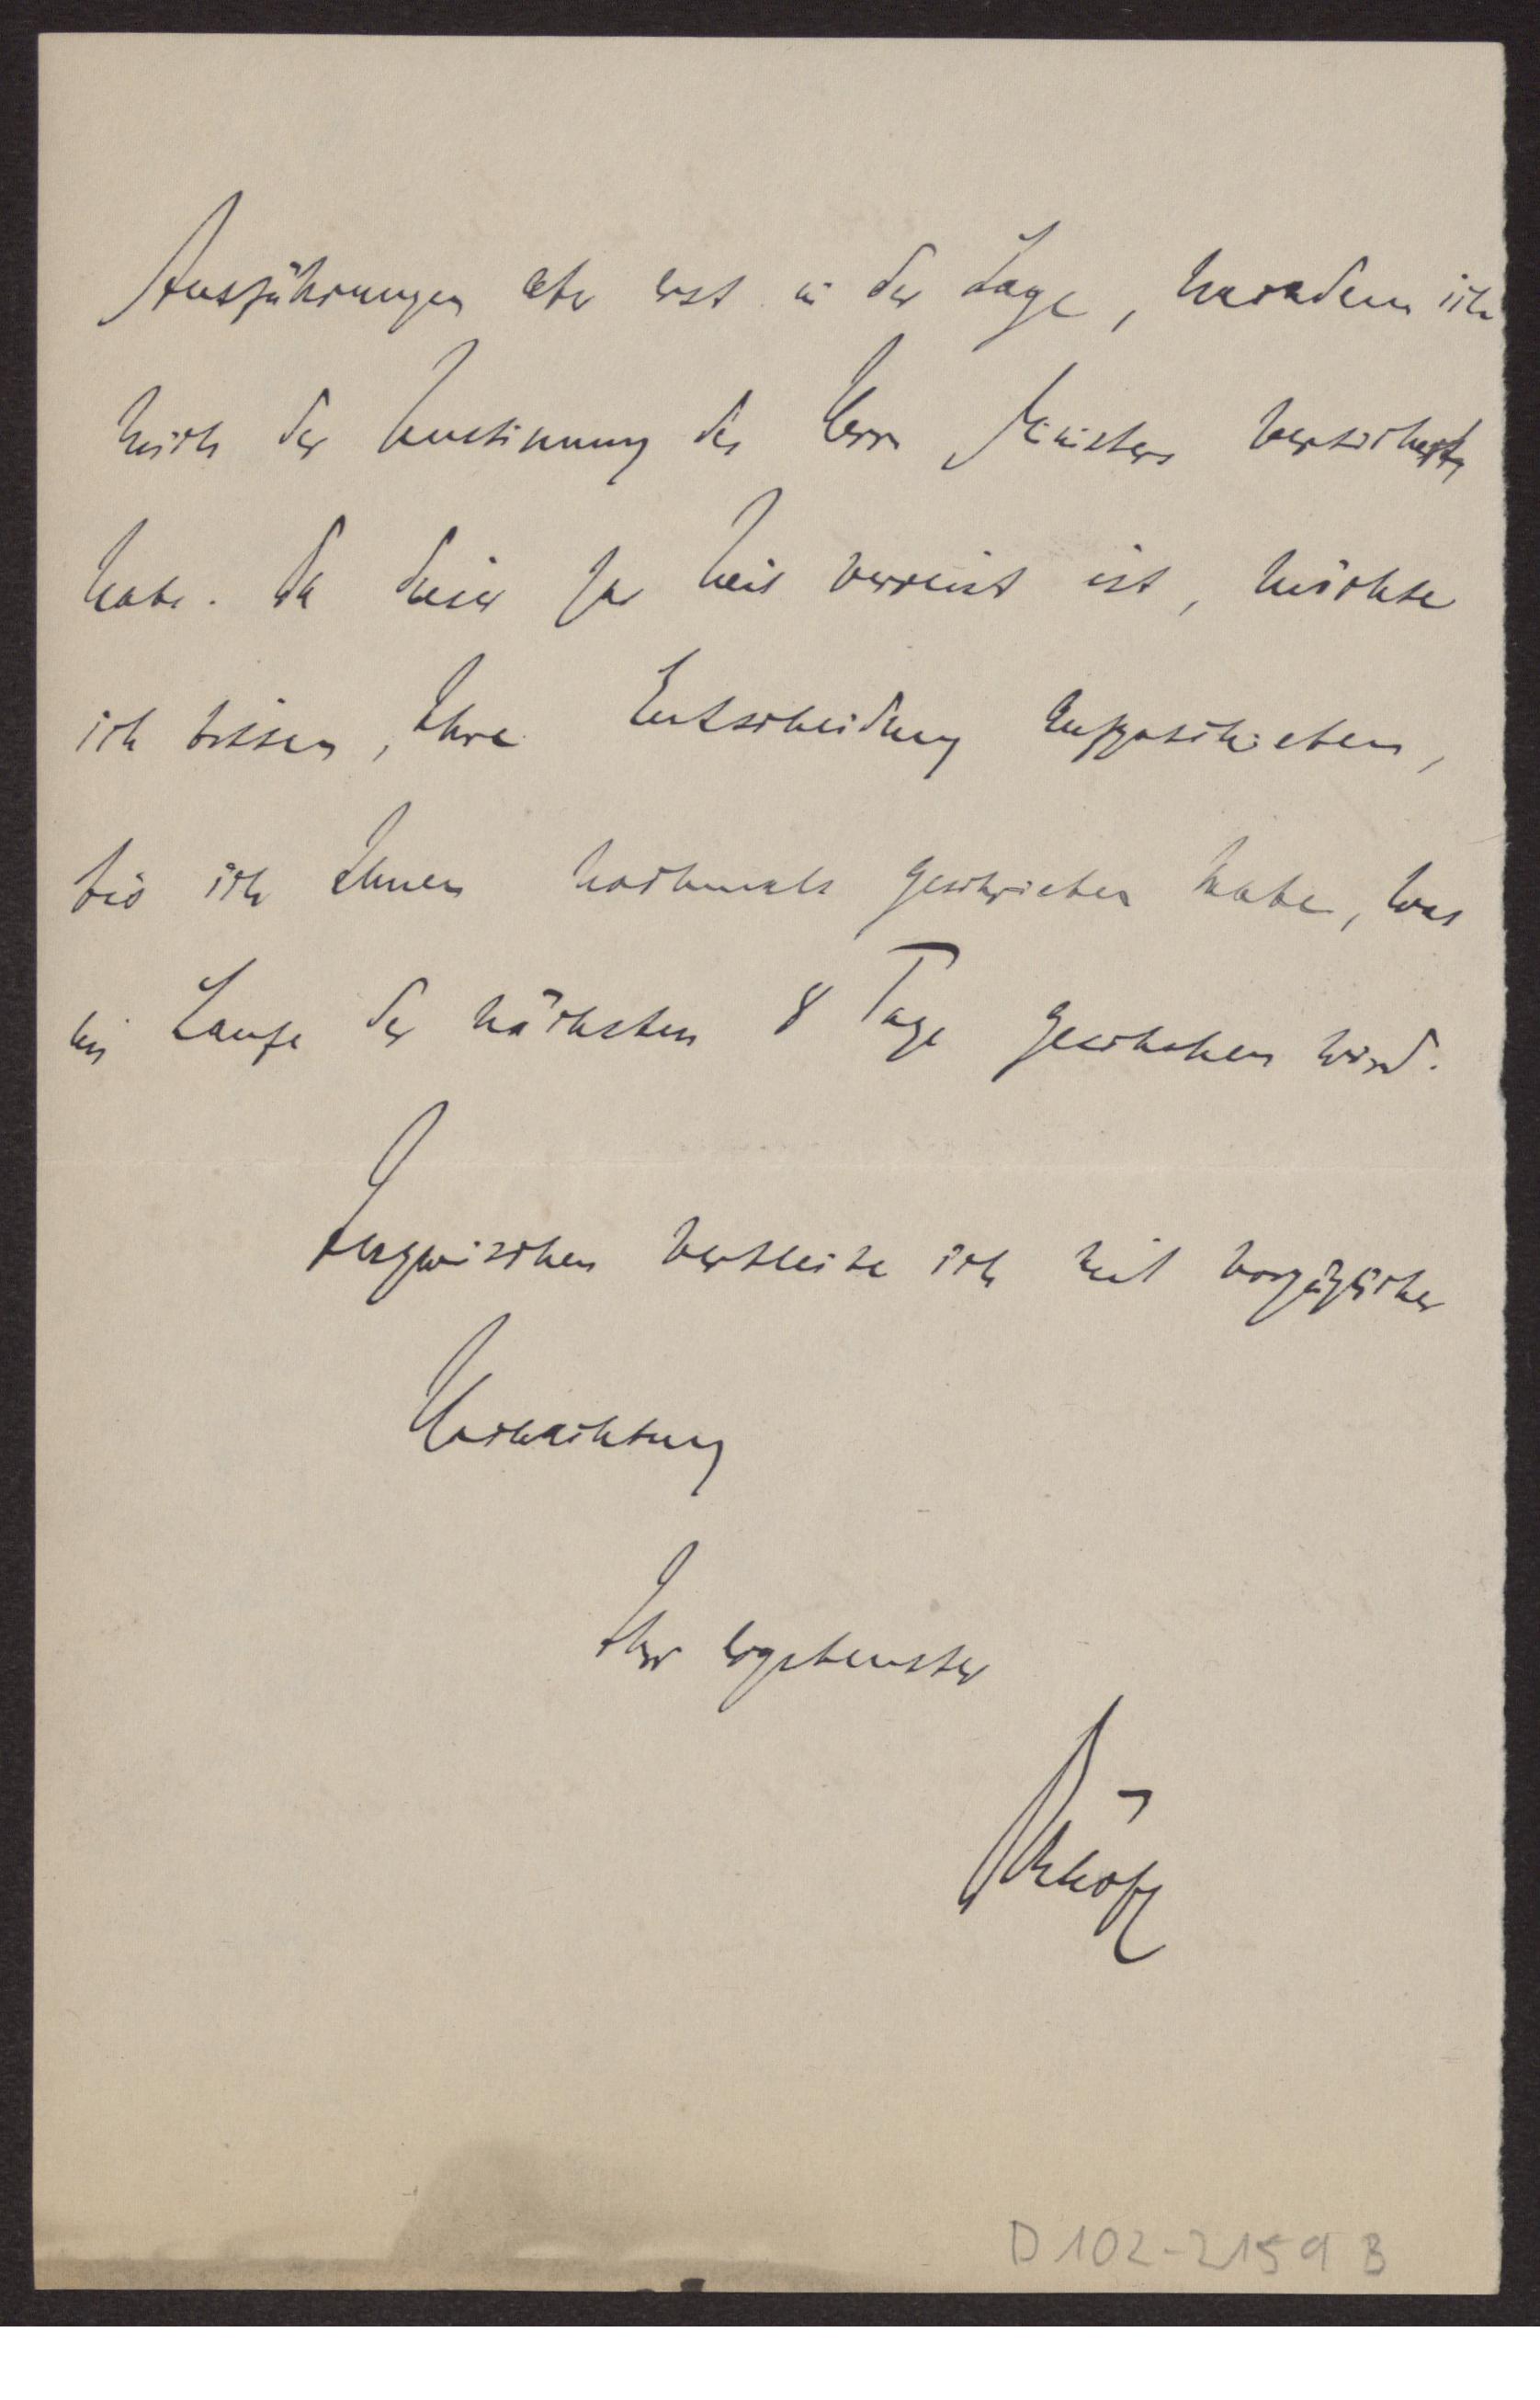 Ausführungen aber erst in der Lage, nachdem ich
mich der Zustimmung des Herrn Ministers versichert
habe. Da dieser zur Zeit verreist ist, möchte
ich bitten, Ihre Entscheidung aufzuschieben,
bis ich Ihnen nochmals geschrieben habe, was
im Laufe der nächsten 8 Tage geschehen wird.
Inzwischen verbleibe ich mit vorzüglicher
Hochachtung
Ihr ergebenster
D 102-2159 B